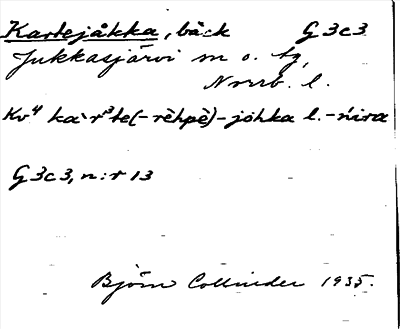 Kartejåkka, bäck G3c3
Jukkasjärvi sn o. tg,
Norrb. l.
Kv⁴ ka`rᵌte(-rèhpè)-jŏhka l. -ńira
G3c3, n:r 13
Björn Collinder 1935.